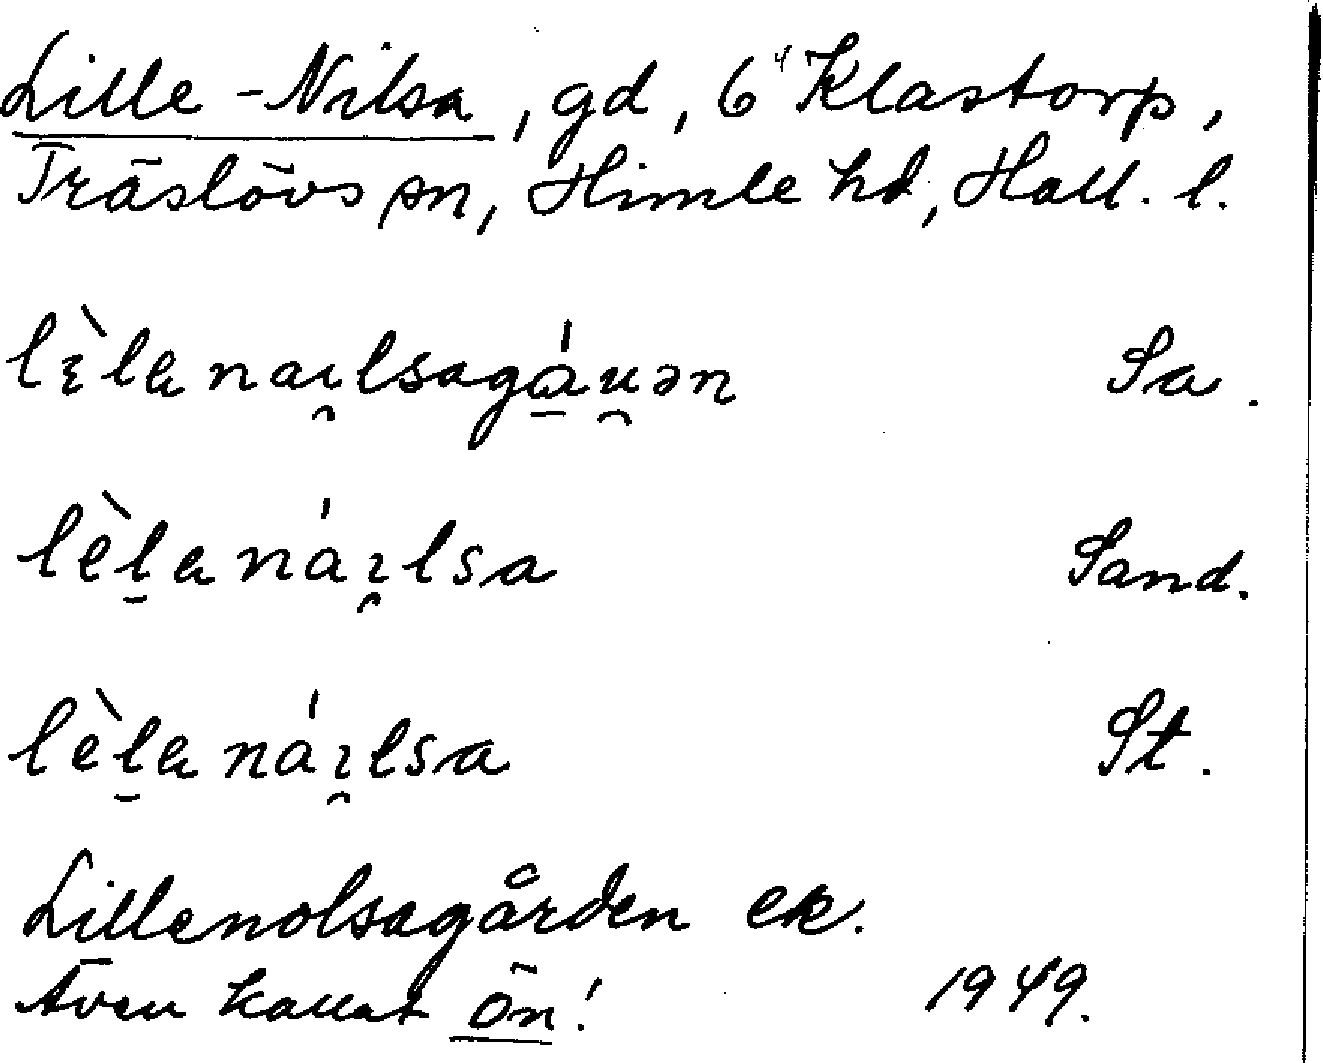 Lille-Nilsa, gd, 6⁴ Klastorp,
Träslövs sn, Himle hd, Hall. l.
lɛ̀la naı̯lsagá̱u̯ən Sa.
lèḻa náı̯lsa Sand.
lèḻa náı̯lsa St.
Lillenolsagården ek.
Även kallat Ön! 1949.